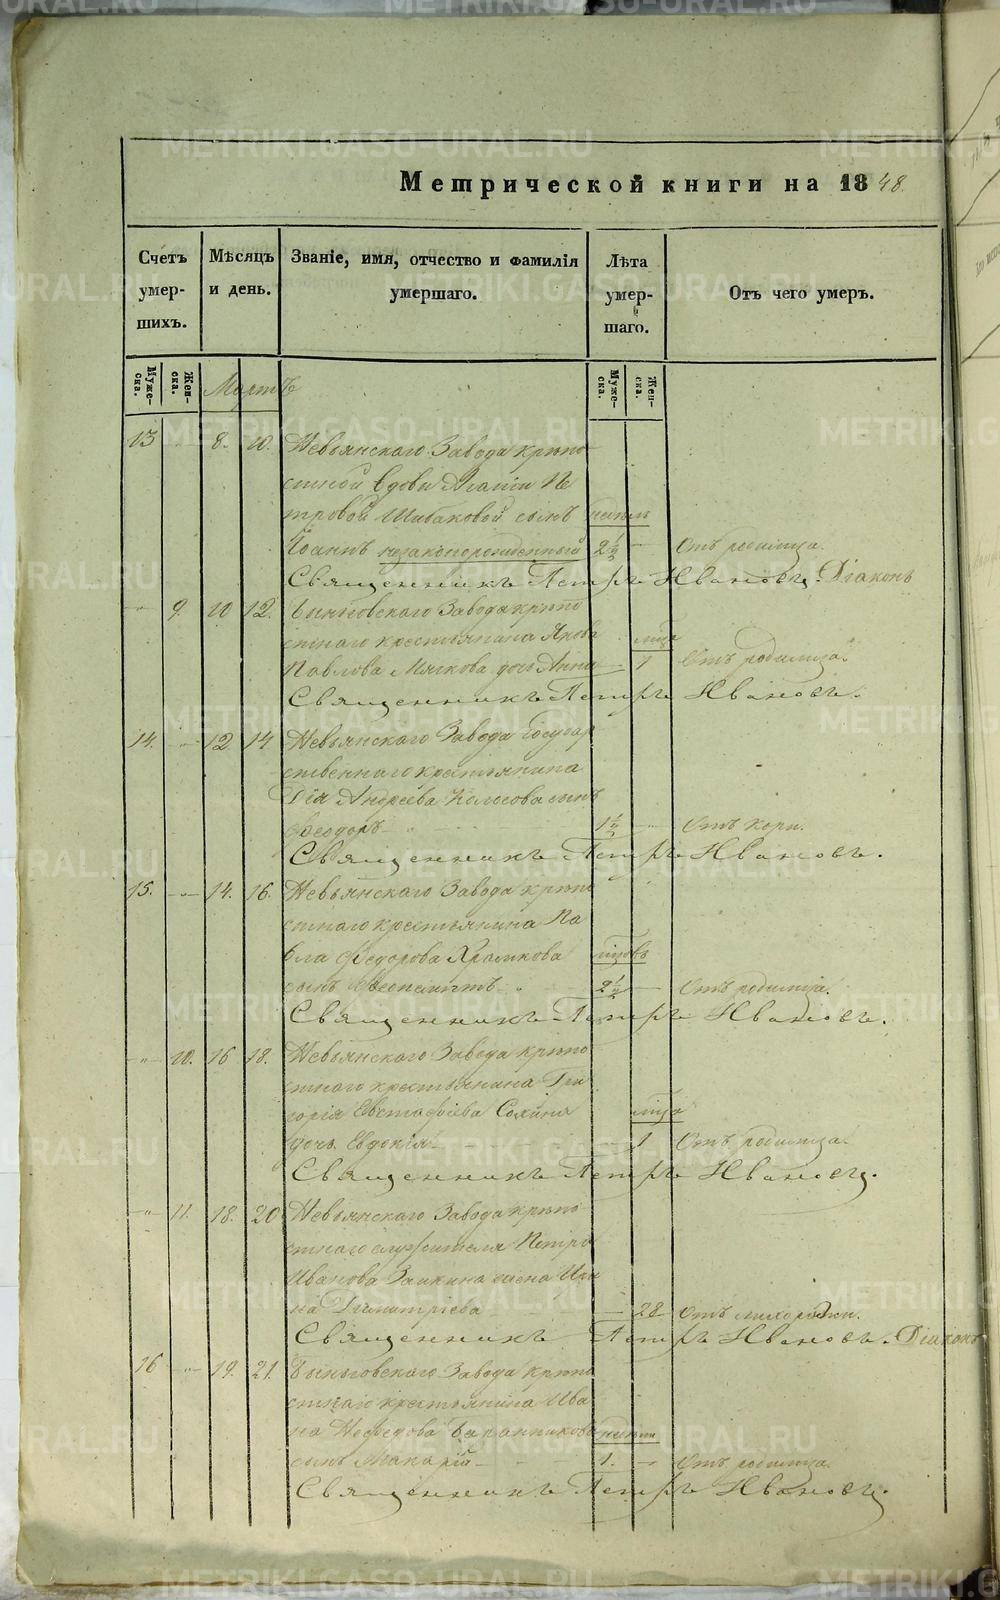 Метрической книги на 1848.
Счетъ умер-шихъ.
Мѣсяцъ и день.
Званіе, имя, отчество и фамилія умершаго.
Лѣта умер-шаго.
Отъ чего умеръ.
Муже-ска.
Жен-ска.
Мартъ
Муже-ска.
Жен-ска.
13 - 8. 10. Невьянскаго Завода крѣпо
стной вдовы Агапіи Пе
тровой Шибаковой сынъ недѣль
Іоаннъ незаконорожденный 2½ - Отъ родимца.
Священникъ Петръ Ивановъ. Діаконъ
-"- 9. 10 12. Быньговскаго Завода крѣпо
стнаго крестьянина Якова мца
Павлова Мягкова дочь Анна - 1 Отъ родимца.
Священникъ Петръ Ивановъ.
14. -"- 12 14 Невьянскаго Завода Государ
ственнаго крестьянина
Андреева Колосова сынъ
Феодоръ 1½ -"- Отъ кори.
Священникъ Петръ Ивановъ.
15. -"- 14. 16. Невьянскаго Завода крѣпо
стнаго крестьянина Па
вла Федорова Храмкова мцовъ
сынъ Феопемптъ 2½ - Отъ родимца.
Священникъ Петръ Ивановъ.
-"- 10. 16 18. Невьянскаго Завода крѣпо
стнаго крестьянина Гри
горія Евстафіева мца
дочь Евдокія - 1 Отъ родимца.
Священникъ Петръ Ивановъ.
-"- 11. 18. 20 Невьянскаго Завода крѣпо
стнаго служителя Петра
Иванова Заикина жена Ири
на Димитріева - 28 Отъ лихорадки.
Священникъ Петръ Ивановъ. Діаконъ
16 -"- 19. 21. Быньговскаго Завода крѣпо
стнаго крестьянина Ива
на Нефедова Баранникова недѣли
сынъ Макарій 1. - Отъ родимца.
Священникъ Петръ Ивановъ.
METRIKI.GASO-URAL.RU